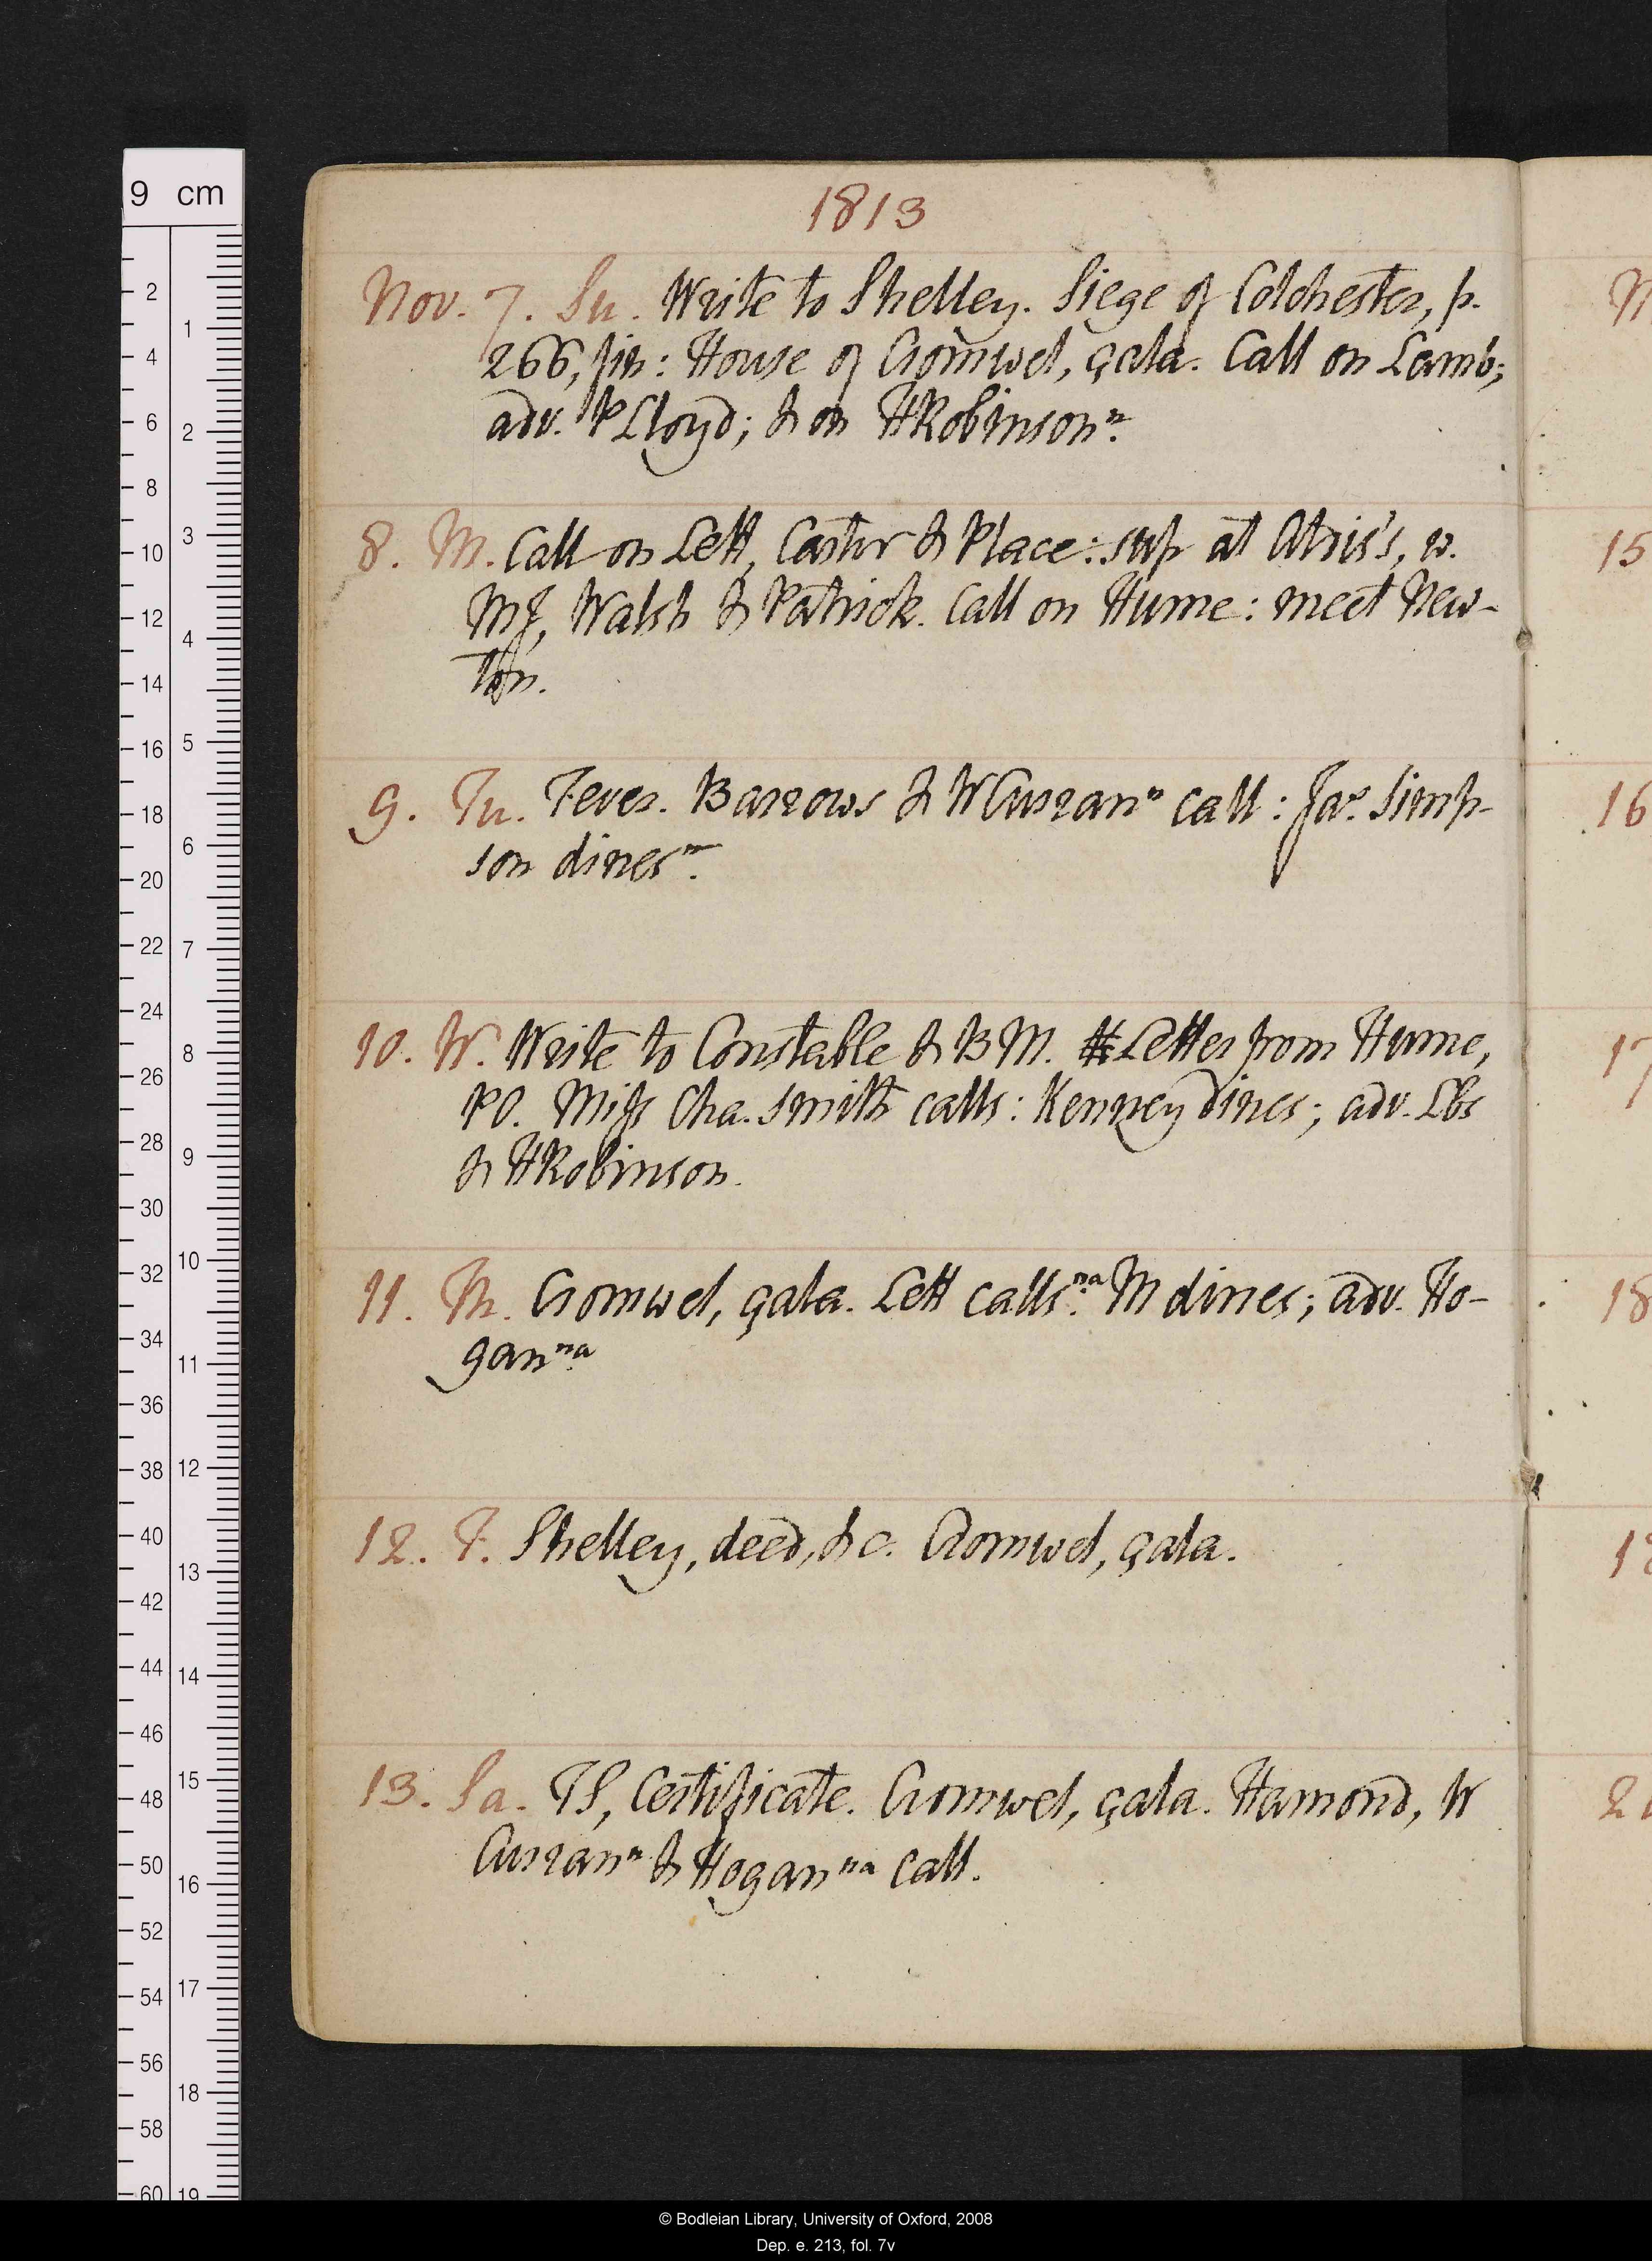 1813
Nov. 7. Su. Write to Shelley. Siege of Colchester, p.
266, fin: House of Cromwel, çala. Call on Lamb;
adv. P Lloyd; & on HRobinson n.
8. M. Call on Lett, Carter & Place: sup at Alexis's, w.
MJ, Walsh & Patrick. Call on Hume: meet New-
ton.
9. Tu. Fever. Barrows & W Curran n call: Jas. Simp-
son dines n.
10. W. Write to Constable & BM. Letter from Hume,
PO. Miss Cha. Smith calls: Kenney dines; adv. Lbs
& HRobinson.
11. Th. Cromwel, çala. Lett calls na. M dines; adv. Ho-
gan na
12. F. Shelley, deed, &c. Cromwel, çala.
13. Sa. TS, Certificate. Cromwel, çala. Hamond, W
Curran n & Hogan na call.
N
15
16
17
18
9 cm
2
4
6
8
10
12
14
16
18
20
22
24
26
28
30
32
34
36
38
40
42
44
46
48
50
52
54
56
58
60
1
2
3
4
5
6
7
8
9
10
11
12
13
14
15
16
17
18
19
© Bodleian Library, University of Oxford, 2008
Dep. e. 213, fol. 7v